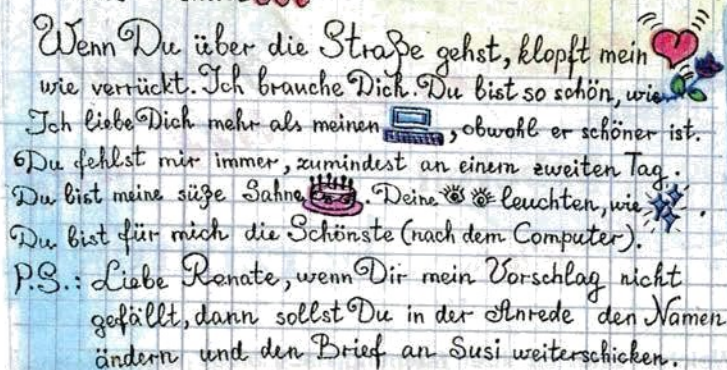 Wenn Du über die Straße gehst, klopft mein
wie verrückt. Ich brauche Dich. Du bist so schön, wie
Ich liebe Dich mehr als meinen , obwohl er schöner ist.
Du fehlst mir immer, zumindest an einem zweiten Tag.
Du bist meine süße Sahne . Deine leuchten, wie .
Du bist für mich die Schönste (nach dem Computer).
P.S.: Liebe Renate, wenn Dir mein Vorschlag nicht
gefällt, dann sollst Du in der Anrede den Namen
ändern und den Brief an Susi weiterschicken.